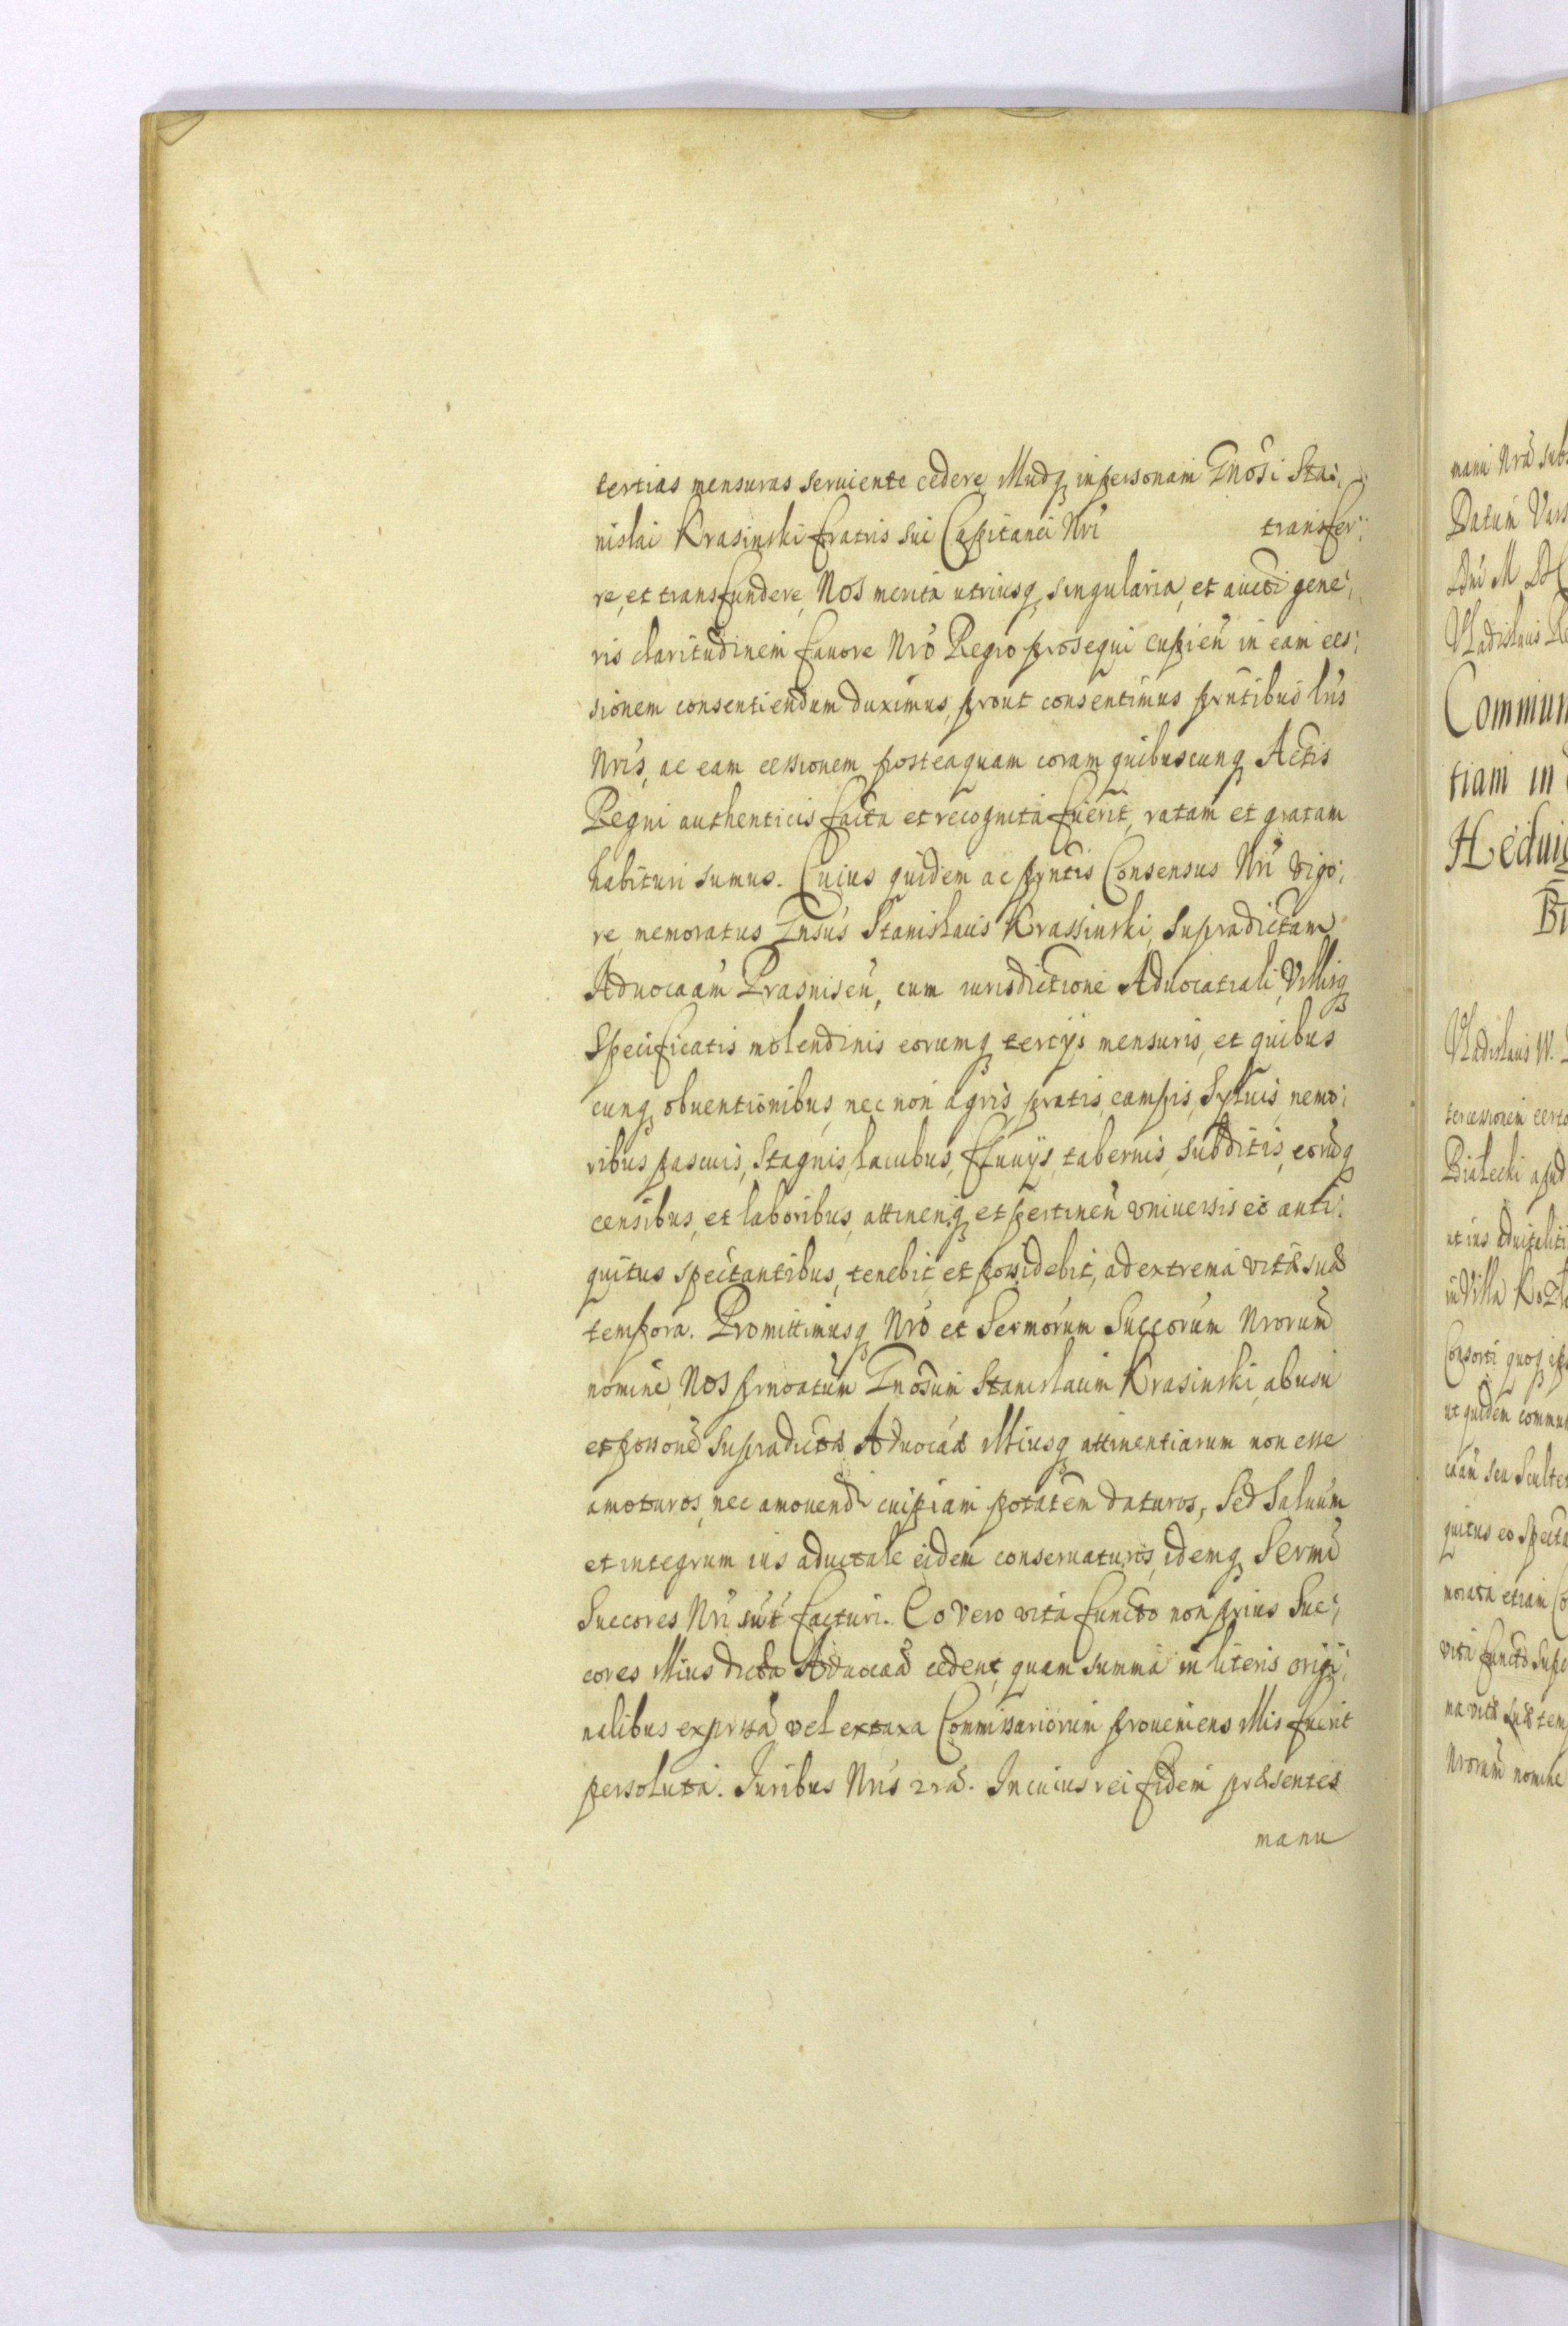 tertias mensuras seruiente cedere, Illudq in personam Gnosi Sta:
nislai Krasinski fratris sui Capitanei Nri transfer:
re, et transfundere, Nos merita utriusq singularia, et aucti gene:
ris claritudinem fauore Nro Regio prosequi cupien in eam ces:
sionem consentiendum duximus, prout consentimus pntibus lris
Nris, ac eam cessionem posteaquam coram quibuscunq Actis
Regni authenticis facta et recognita fuerit, ratam et gratam
habituri sumus. Cuius quidem ac pntis Consensus Nri vigo:
re memoratus Gnsus Stanislaus Krassinski, supradictam
Aduocaam Prasnisen, cum iurisdictione Aduocatiali, Villisq
Specificatis molendinis eorumq tertijs mensuris, et quibus
cunq obuentionibus, nec non agris, pratis, campis, Syluis, nemo:
ribus pascuis, Stagnis, lacubus, fluuijs, tabernis, subditis, eorūq
censibus, et laboribus, attinenq et pertinen vniuersis eo anti:
quitus spectantibus, tenebit et possidebit, ad extrema vitæ suæ
tempora. Promittimusq Nro et Sermorum Succorum Nrorum
nomine, Nos prnoatum Gnosum Stanislaum Krasinski, ab usu
et possone supradictæ Aduocaæ Illiusq attinentiarum non esse
amoturos, nec amouendi cuipiam potatem daturos, Sed Saluum
et integrum ius aduitale eidem conseruaturos, idemq Sermi
Succores Nri sut facturi. Eo vero vita functo non prius Suc:
cores Illius dicta Aduocaa cedent, quam summa in literis origi:
nalibus expressa vel ex taxa Commissariorum proueniens Illis fuerit
persoluta. Iuribus Nris 2ra. In cuius rei fidem præsentes
manu
manu Nra subs
Datum Vars
Dni M D C
Vladislaus Re
Commun
tiam in
Heduig
Vladislaus W.
tercessionem certo
Bialecki apud
ut ius aduitaliti
in Villa Kozlo
Consorti quoq ips
ut quidem commun
caam seu Sculte
quitus eo specta
morata etiam Co
vita functo supe
ma vitæ suæ tem
Nrorum nomine